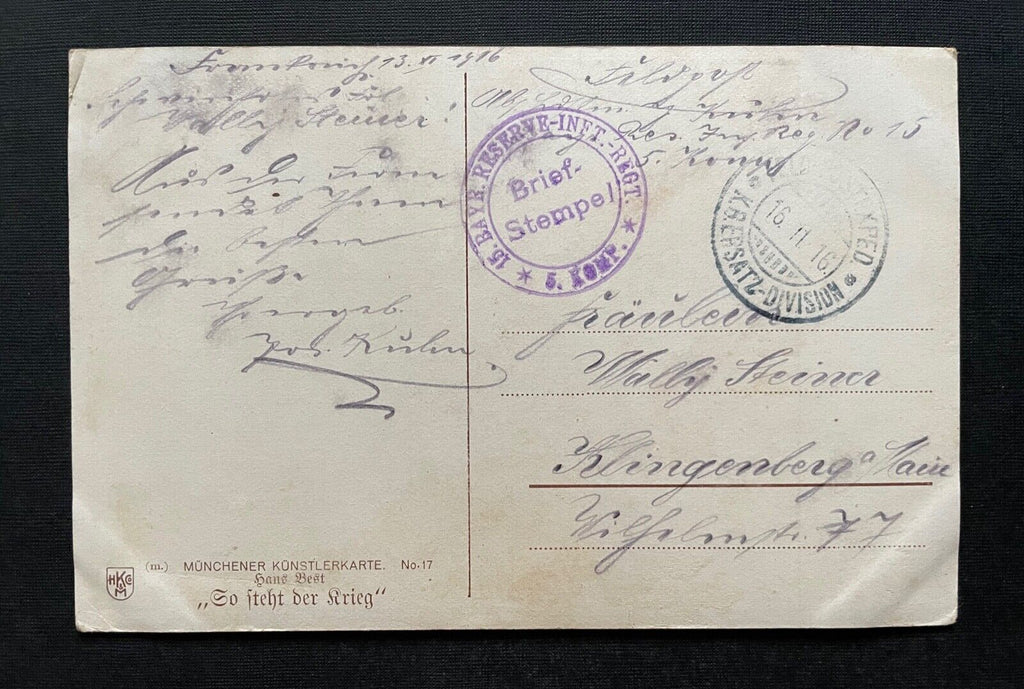 Frankreich 13. II 1916
Frl.
Wally Steiner!
Aus der Ferne
sendet Ihnen
die besten
Grüße
Ihr ergeb.
Jos. Kuhn.
Feldpost
Abs. Kuhn
Res. Inf. Reg. No 15
5. Komp
15. BAYR. RESERVE-INFT.-REGT.
Brief-
Stempel
* 5. KOMP. *
16. 11. 16.
K.B. ERSATZ-DIVISION
Fräulein
Wally Steiner
Klingenberg a/Main
Wilhelmstr. 77
HKM Co
(m.) MÜNCHENER KÜNSTLERKARTE. No. 17
Hans Best
„So steht der Krieg“